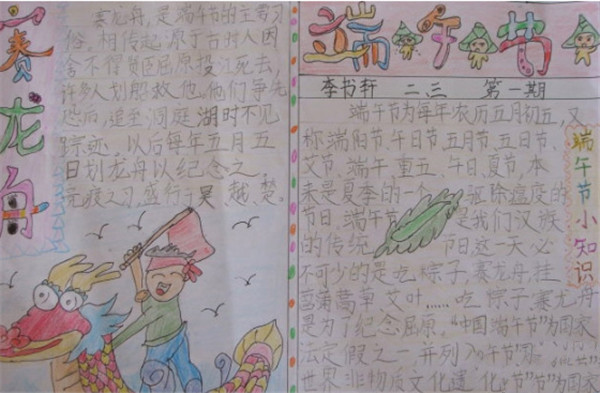 赛龙舟
赛龙舟,是端午节的主要习
俗。相传起源于古时人因
舍不得贤臣屈原投江死去,
许多人划船救他。他们争先
恐后,追至洞庭湖时不见
踪迹,以后每年五月五
日划龙舟以纪念之。
之习,盛行于吴、越、楚。
端午节
李书轩 二、三 第一期
端午节为每年农历五月初五,又
称端阳节、午日节、五月节、五日节、
艾节、端午、重五、午日、夏节,本
来是夏季的一个 驱除瘟疫的
节日,端午节 是我们汉族
的传统 阳这一天必
不可少的是吃粽子,赛龙舟,挂
菖蒲蒿草艾叶……吃粽子,赛龙舟
是为了纪念屈原,“中国端午节”为国家
法定假之一,并列入
世界非物质文化遗 为国家
端午节小知识